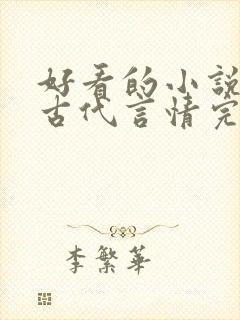 好看的小說
古代言情完
李繁華